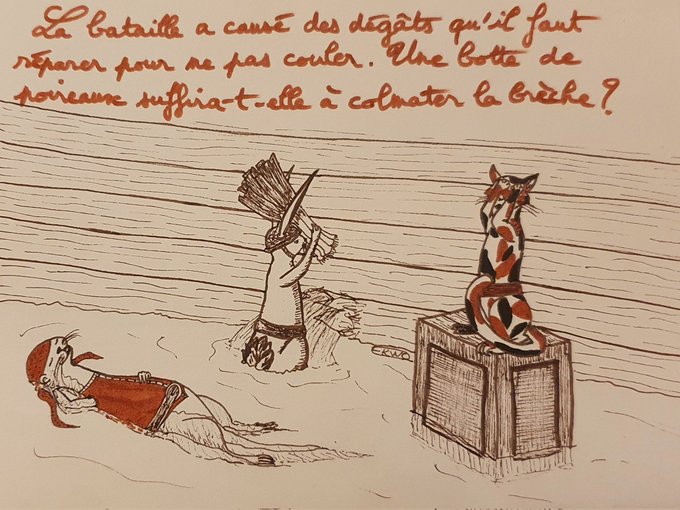 La bataille a causé des dégâts qu'il faut
réparer pour ne pas couler. Une botte de
poireaux suffira-t-elle à colmater la brèche ?